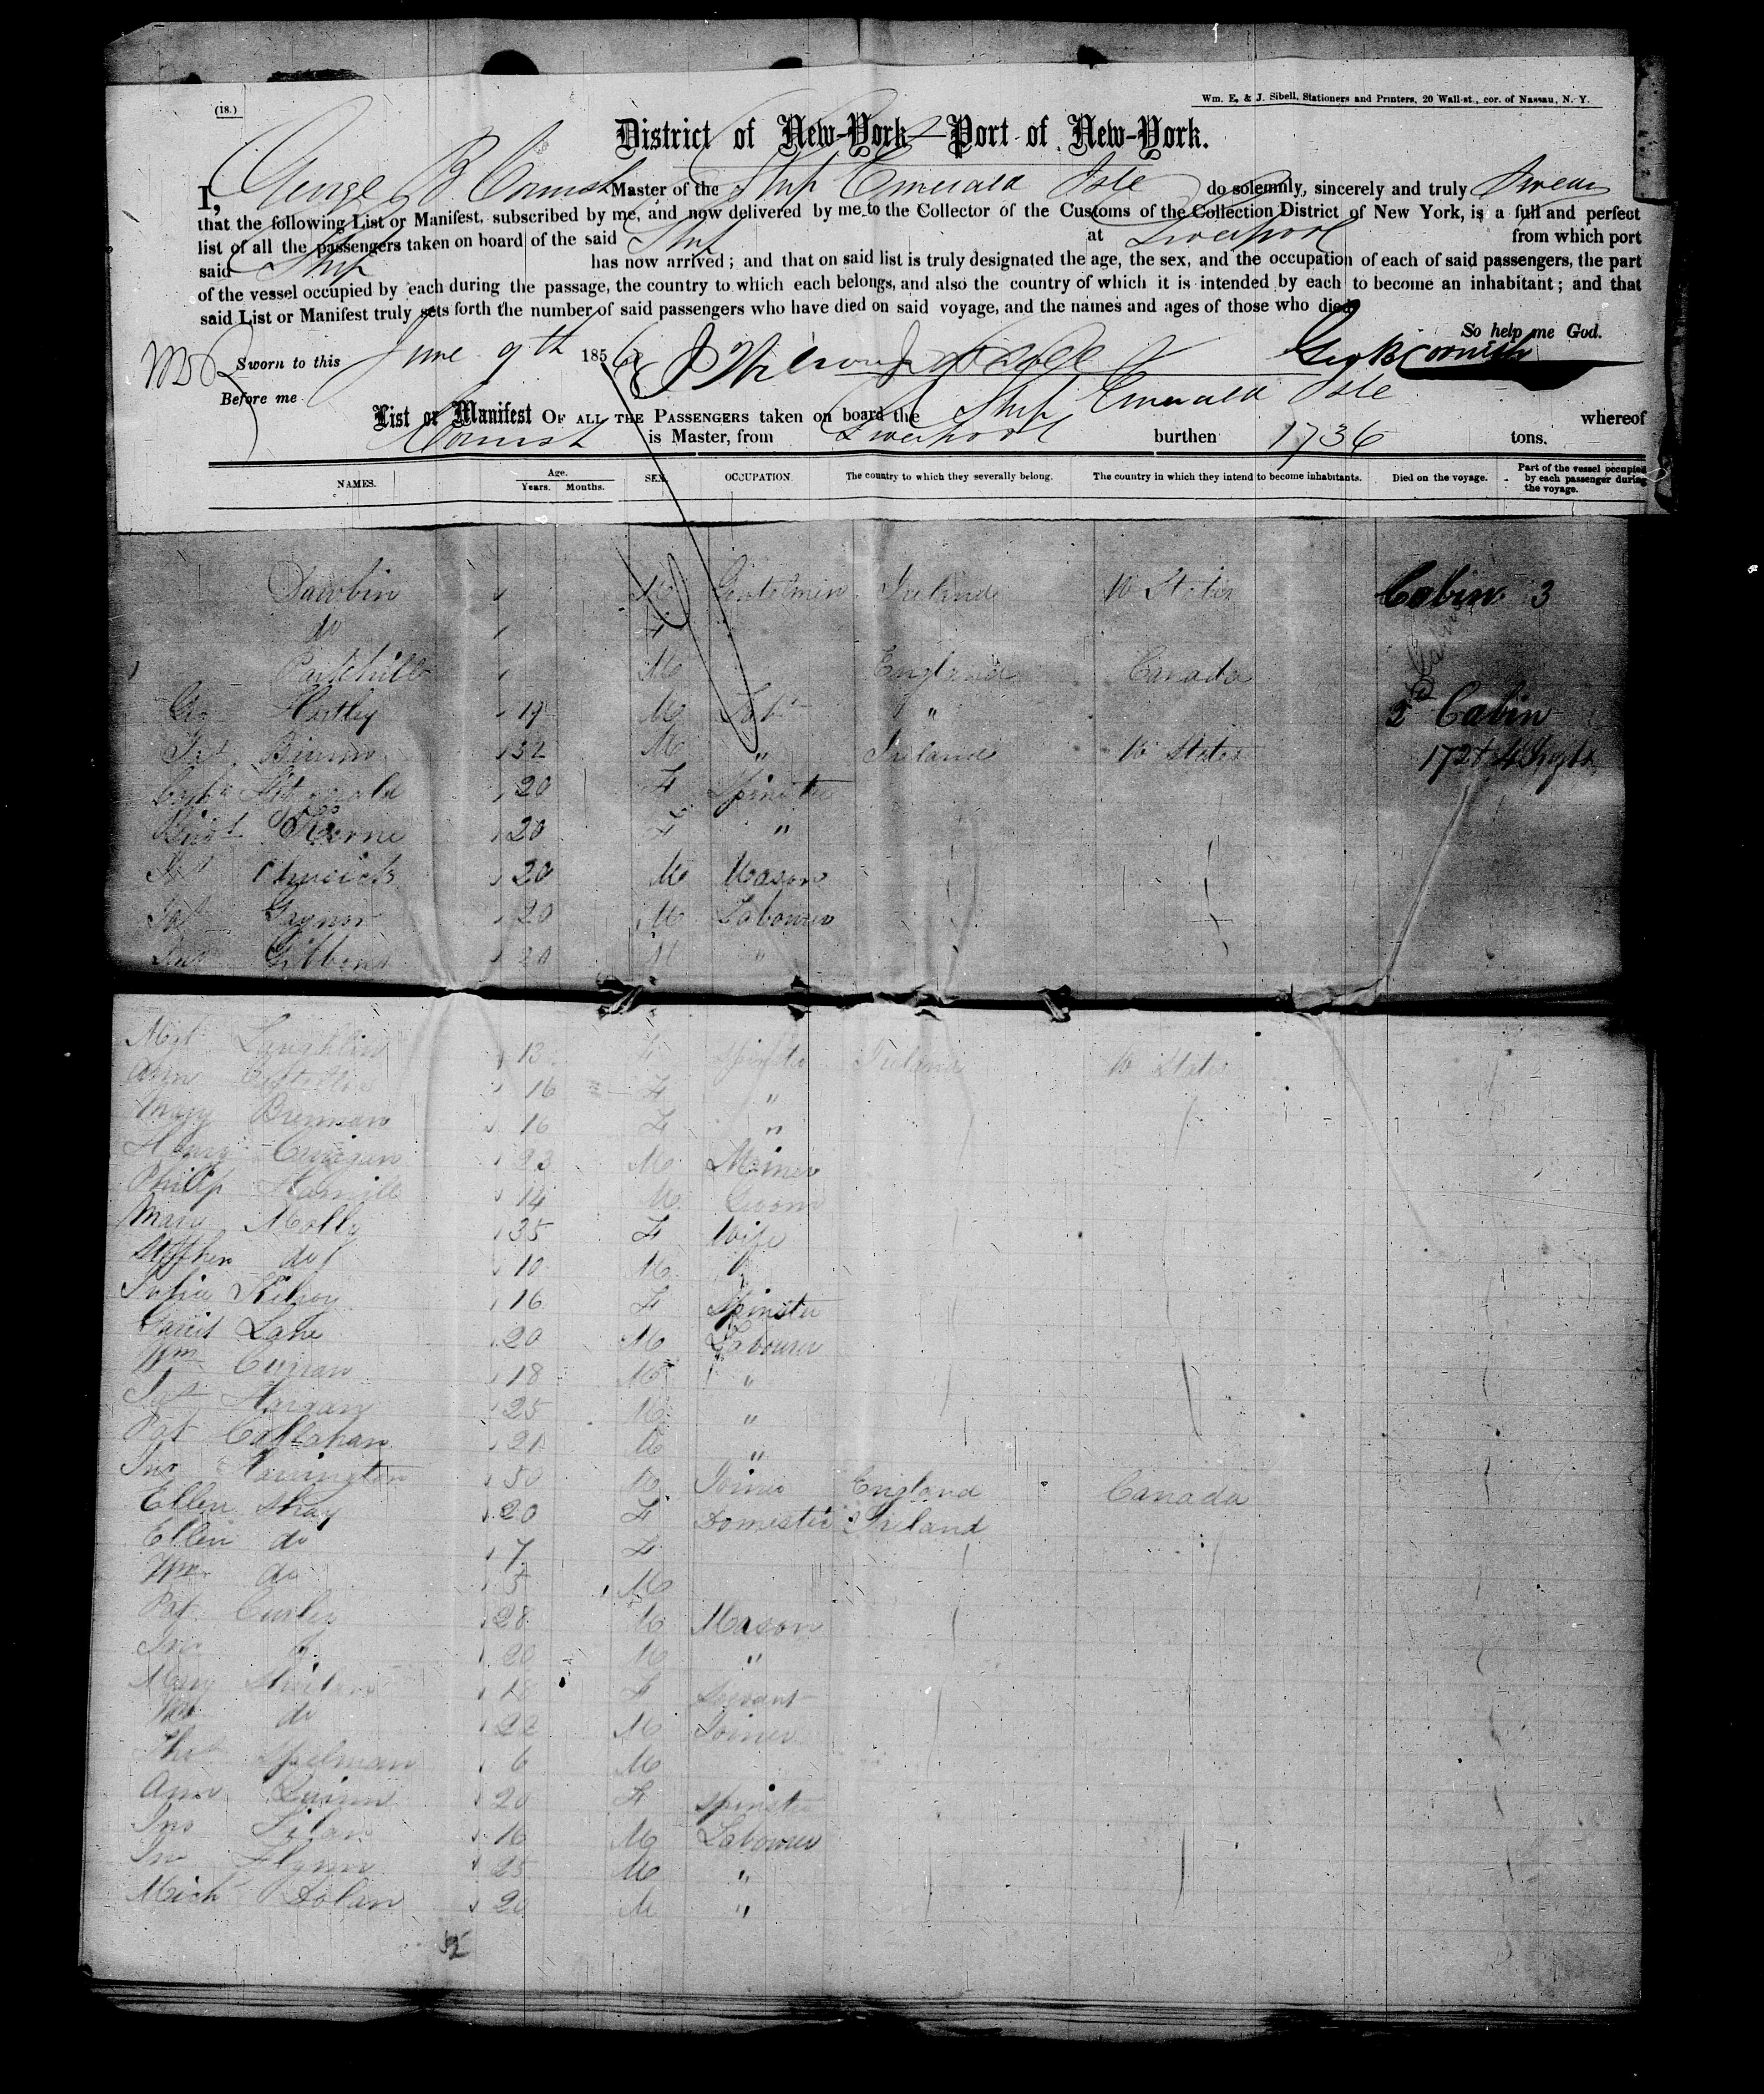 (18.)
Wm. E. & J. Sibell, Stationers and Printers, 20 Wall-st., cor. of Nassau, N. Y.
District of New-York—Port of New-York.
I, George B Cornish Master of the Ship Emerald Isle do solemnly, sincerely and truly swear
that the following List or Manifest, subscribed by me, and now delivered by me to the Collector of the Customs of the Collection District of New York, is a full and perfect
list of all the passengers taken on board of the said Ship at Liverpool from which port
said Ship has now arrived; and that on said list is truly designated the age, the sex, and the occupation of each of said passengers, the part
of the vessel occupied by each during the passage, the country to which each belongs, and also the country of which it is intended by each to become an inhabitant; and that
said List or Manifest truly sets forth the number of said passengers who have died on said voyage, and the names and ages of those who died.
So help me God.
Sworn to this June 9th 1856 Geo B Cornish
Before me
List or Manifest OF ALL THE PASSENGERS taken on board the Ship Emerald Isle whereof
Cornish is Master, from Liverpool burthen 1736 tons.
NAMES. Age. Years. Months. SEX. OCCUPATION. The country to which they severally belong. The country in which they intend to become inhabitants. Died on the voyage. Part of the vessel occupied by each passenger during the voyage.
Dawbin M Gentelmen Ireland U States Cabin 3
do F
M England Canada
Geo Hartley 19 M Labr " 2d Cabin
32 M " Ireland U States 172
20 F Spinster
Kerne 20 F "
20 M Mason
Gaynor 20 M Labourer
Gibbons 20 M "
Mgt Laughlin 13 F Spinster Ireland U States
Ann 16 F "
Mary Brennan 16 F "
Henry Corrigan 23 M Miner
Philip Hamill 14 M Groom
Mary Molly 35 F Wife
Stephen do 10 M
Julia Kilroy 16 F Spinster
Garrit Lane 20 M Labourer
Wm Curran 18 M "
Horgan 25 M "
Pat Callahan 21 M "
Jno Harrington 50 M Joiner England Canada
Ellen Shay 20 F Domestic Ireland
Ellen do 7 F
Wm do 5 M
Pat Curley 28 M Mason
Jno 20 M "
Mary 18 F Servant
Wm do 22 M Joiner
Thos Spelman 6 M
Ann Quinn 20 F Spinster
Jno 16 M Labourer
Jno Flynn 25 M "
Mich Dolan 20 M "